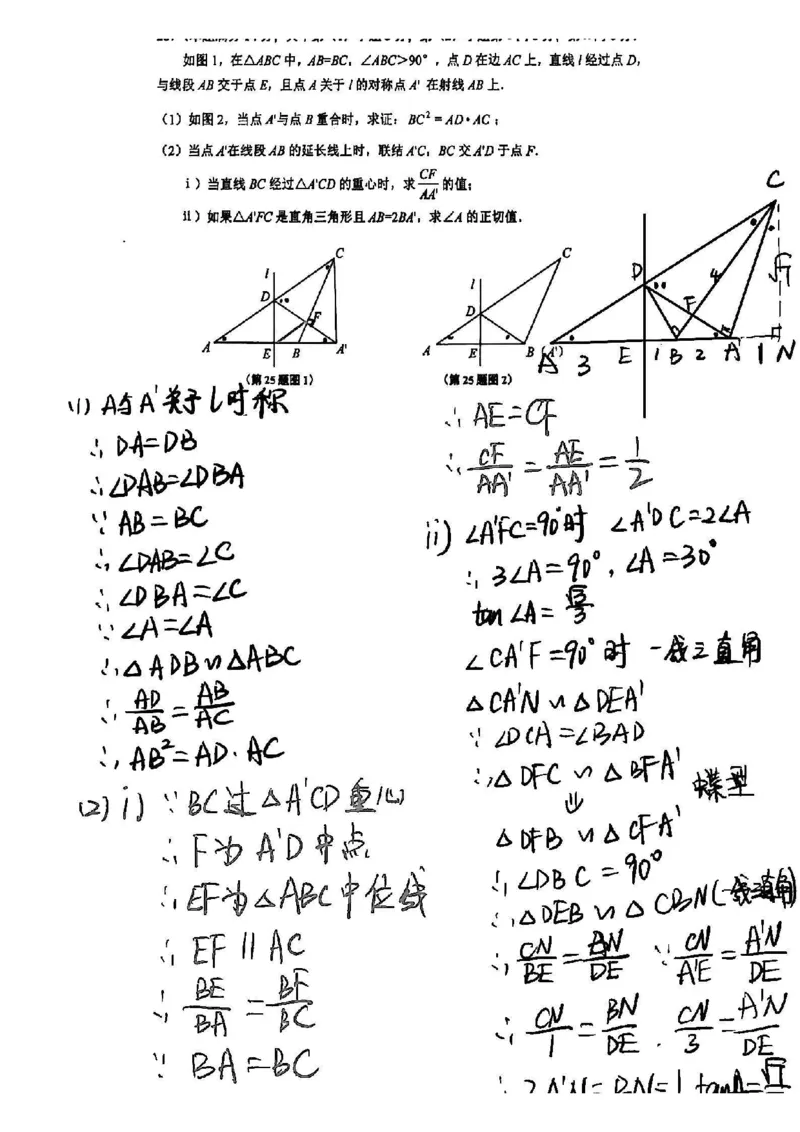 如图1，在△ABC中，AB=BC，∠ABC>90°，点D在边AC上，直线l经过点D，
与线段AB交于点E，且点A关于l的对称点A'在射线AB上.
（1）如图2，当点A'与点B重合时，求证：BC²=AD•AC；
（2）当点A'在线段AB的延长线上时，联结A'C，BC交A'D于点F.
i）当直线BC经过△A'CD的重心时，求CF/AA'的值；
ii）如果△A'FC是直角三角形且AB=2BA'，求∠A的正切值.
C
l
D
F
A
E
B
A'
（第25题图1）
C
l
D
A
E
B (A')
（第25题图2）
C
D
4
√7
F
A
3
E
1
B
2
A'
1
N
(1) A与A'关于l对称
∴DA=DB
∴∠DAB=∠DBA
∵AB=BC
∴∠DAB=∠C
∴∠DBA=∠C
∵∠A=∠A
∴△ADB∽△ABC
∴AD/AB=AB/AC
∴AB²=AD·AC
(2) i) ∵BC过△A'CD重心
∴F为A'D中点
∴EF为△ABC中位线
∴EF∥AC
∴BE/BA=BF/BC
∵BA=BC
∴AE=CF
∴CF/AA'=AE/AA'=1/2
ii) ∠A'FC=90°时 ∠A'DC=2∠A
∴3∠A=90°，∠A=30°
tan∠A=√3/3
∠CA'F=90°时 一线三直角
△CA'N∽△DEA'
∵∠DCA=∠BAD
∴△DFC∽△BFA' 蝶型
⇓
△DFB∽△CFA'
∴∠DBC=90°
∴△DEB∽△CBN(一线三直角)
∴CN/BE=BN/DE ∵CN/A'E=A'N/DE
∴CN/1=BN/DE . CN/3=A'N/DE